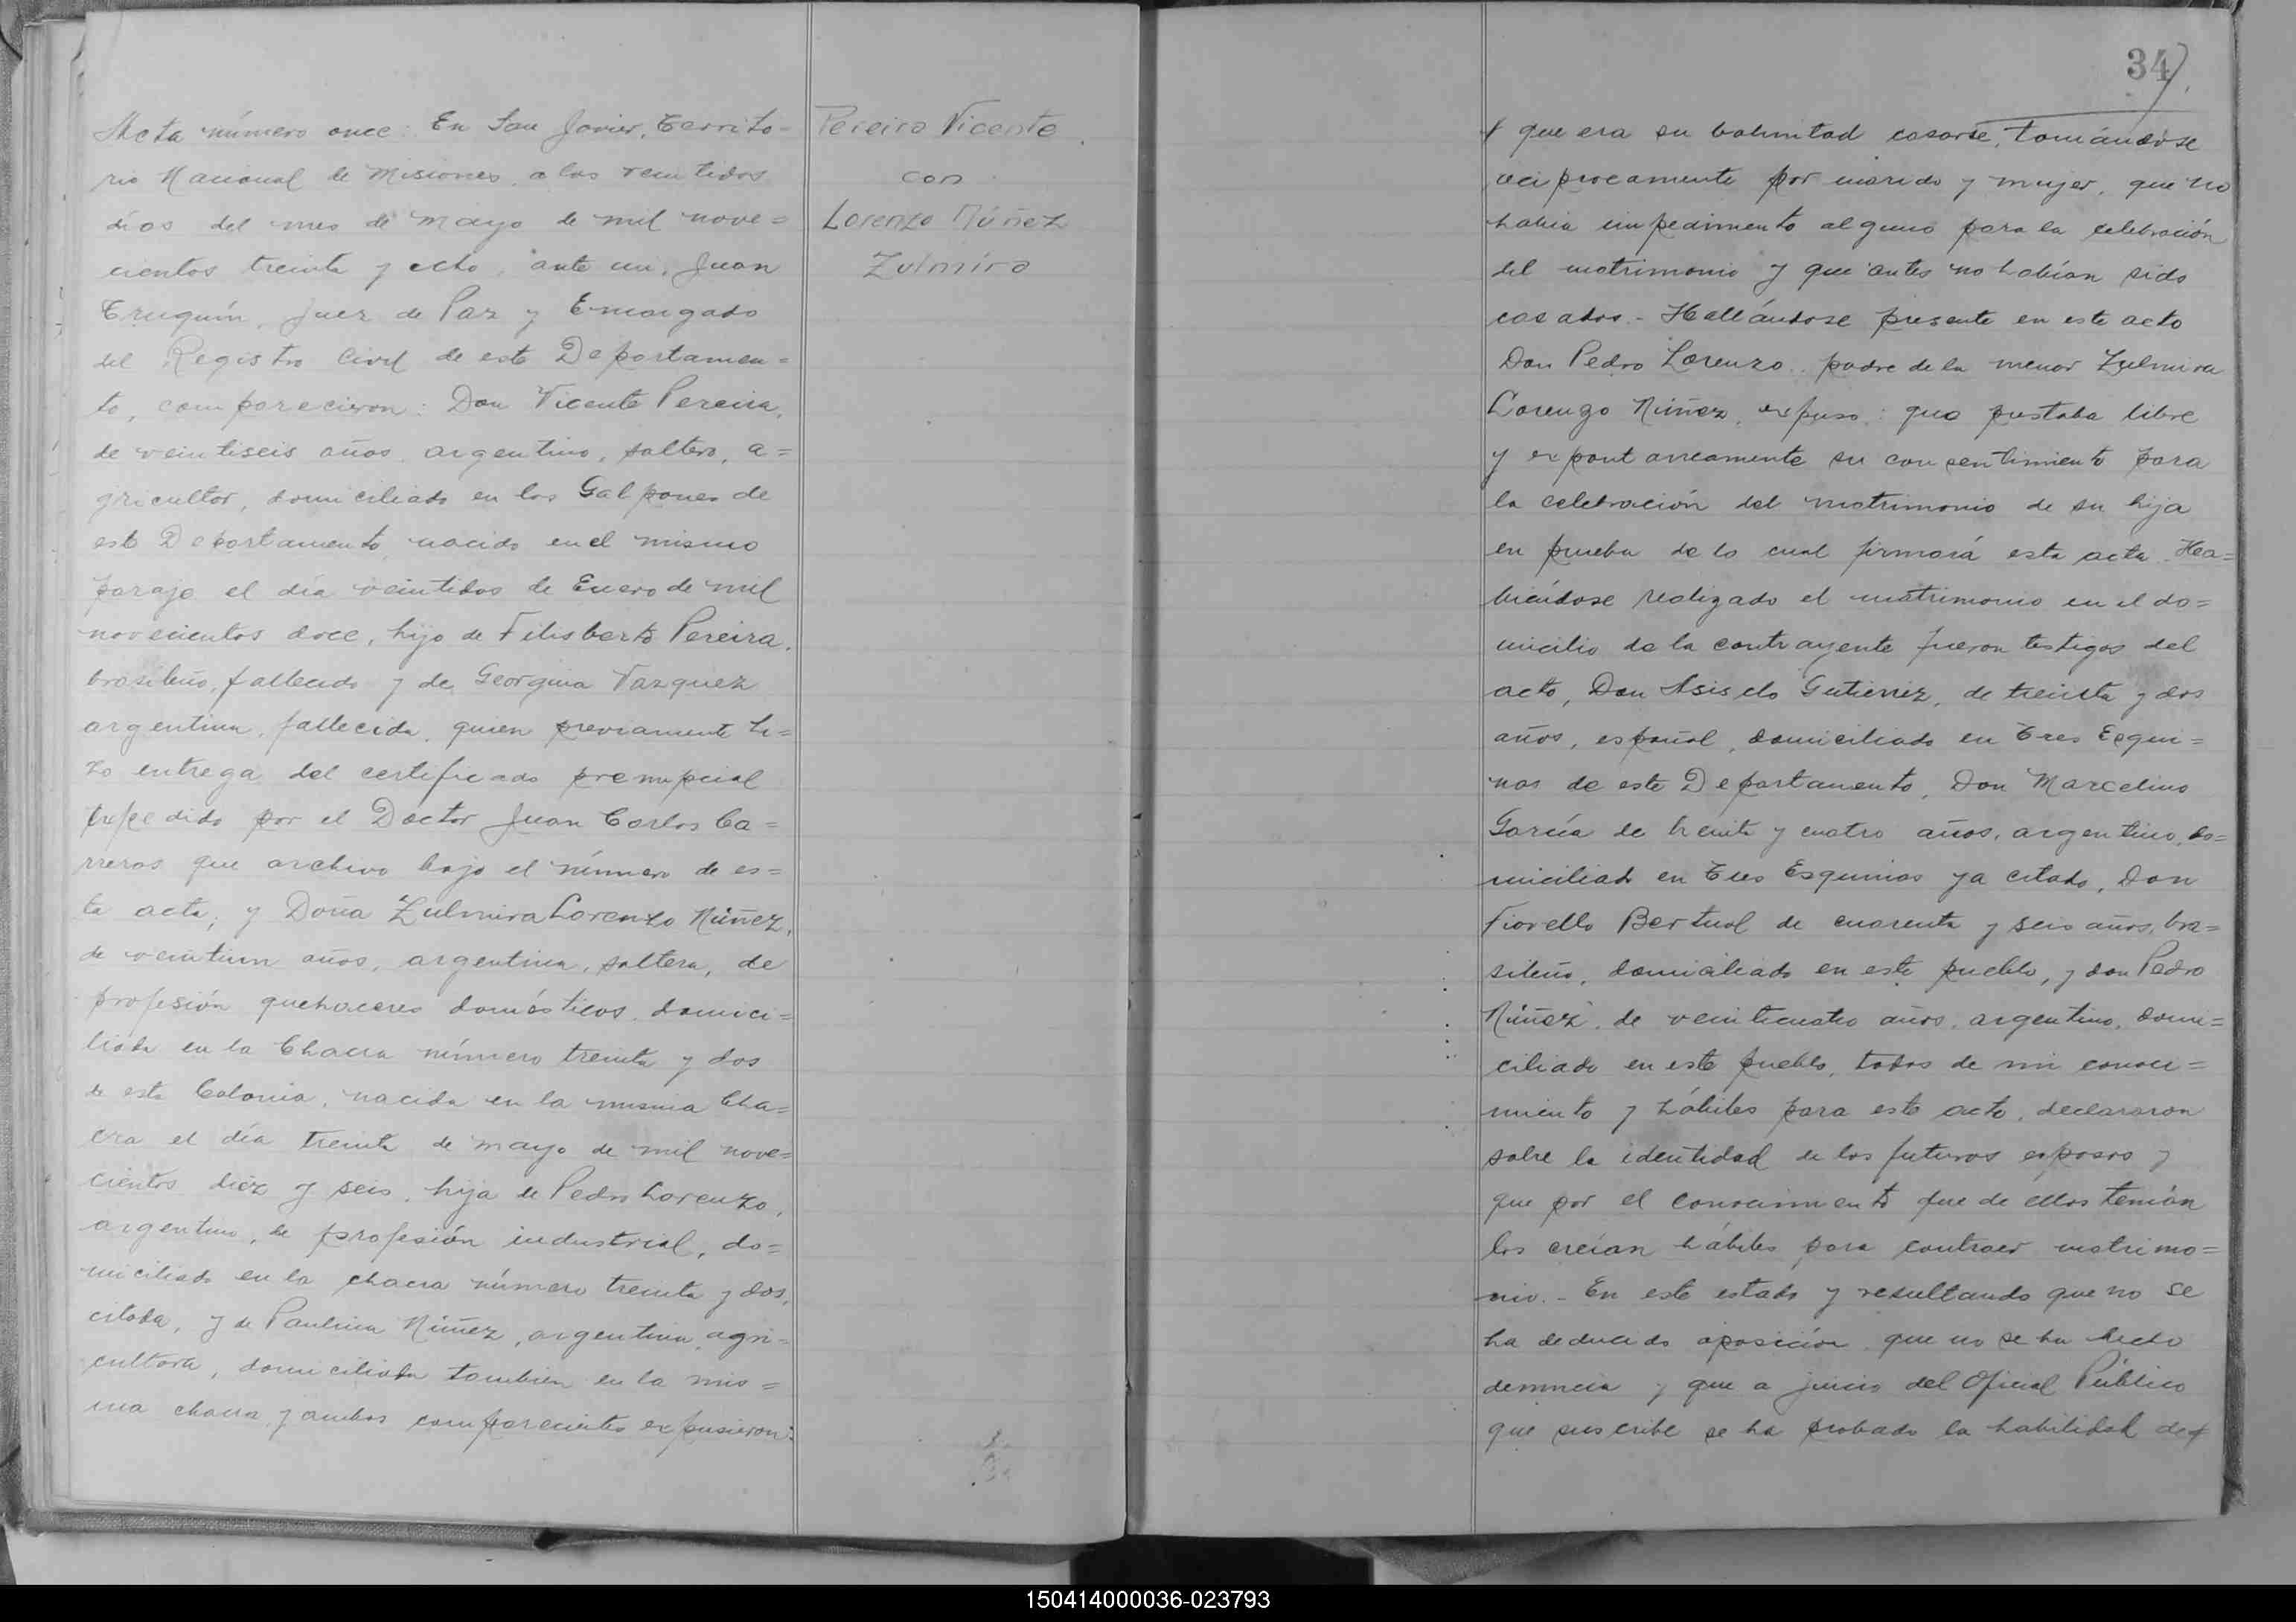 Acta número once: En San Javier, Territo-
rio Nacional de Misiones, a los veintidos
días del mes de Mayo de mil nove=
cientos treinta y ocho, ante mi, Juan
Truquín, Juez de Paz y Encargado
del Registro Civil de este Departamen=
to, comparecieron: Don Vicente Pereira,
de veintiseis años, argentino, soltero, a=
gricultor, domiciliado en los Galpones de
este Departamento, nacido en el mismo
paraje el día veintidos de Enero de mil
novecientos doce, hijo de Filisberto Pereira,
brasileño, fallecido y de Georgina Vazquez
argentina, fallecida, quien previamente hi=
zo entrega del certificado prenupcial
expedido por el Doctor Juan Carlos Ca=
rreras que archivo bajo el número de es=
ta acta; y Doña Zulmira Lorenzo Núñez,
de veintiun años, argentina, soltera, de
profesión quehaceres domésticos, domici=
liada en la Chacra número treinta y dos
de esta Colonia, nacida en la misma Cha=
cra el día treinta de mayo de mil nove=
cientos diez y seis, hija de Pedro Lorenzo,
argentino, de profesión industrial, do=
miciliado en la chacra número treinta y dos,
citada, y de Paulina Núñez, argentina, agri=
cultora, domiciliada tambien en la mis=
ma chacra, y ambos comparecientes expusieron:
Pereira Vicente
con
Lorenzo Núñez
Zulmira
34
que era su voluntad casarse, tomándose
reciprocamente por marido y mujer, que no
había impedimento alguno para la celebración
del matrimonio y que antes no habían sido
casados.- Hallándose presente en este acto
Don Pedro Lorenzo, padre de la menor Zulmira
Lorenzo Núñez, expuso: que prestaba libre
y expontaneamente su consentimiento para
la celebración del matrimonio de su hija
en prueba de lo cual firmará esta acta. Ha=
biéndose realizado el matrimonio en el do=
micilio de la contrayente fueron testigos del
acto, Don Asisclo Gutierrez, de treinta y dos
años, español, domiciliado en Tres Esqui=
nas de este Departamento, Don Marcelino
García de treinta y cuatro años, argentino, do=
miciliado en Tres Esquinas ya citado, Don
Fiorello Bertual de cuarenta y seis años, bra=
sileño, domiciliado en este pueblo, y don Pedro
Núñez, de veinticuatro años, argentino, domi=
ciliado en este pueblo, todos de mi conoci=
miento y hábiles para este acto, declararon
sobre la identidad de los futuros esposos y
que por el conocimiento que de ellos tenían
los creían hábiles para contraer matrimo=
nio.- En este estado y resultando que no se
ha deducido oposición, que no se ha hecho
denuncia y que a juicio del Oficial Público
que suscribe se ha probado la habilidad de
150414000036-023793